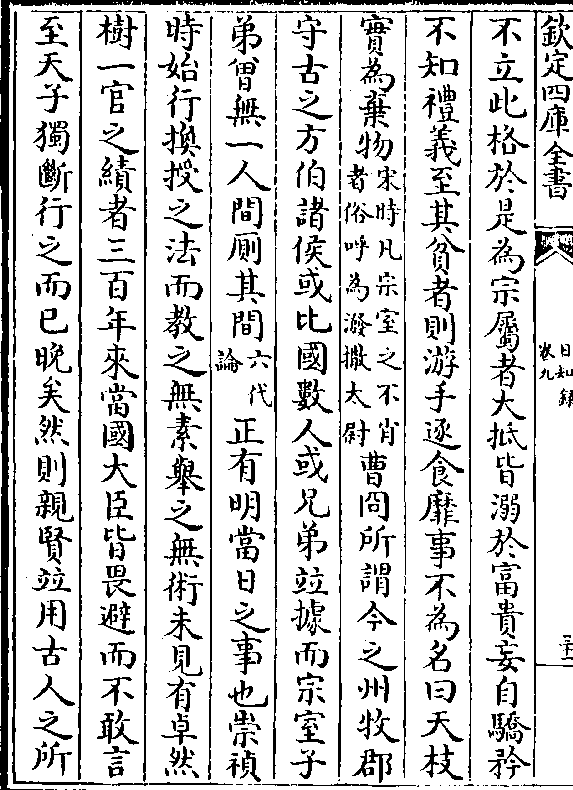 欽定四庫全書
日知錄
卷九
三十一
不立此格於是為宗屬者大抵皆溺於富貴妄自驕矜
不知禮義至其貧者則游手逐食靡事不為名曰天枝
實為棄物宋時凡宗室之不肖者俗呼為潑撒太尉曹冏所謂今之州牧郡
守古之方伯諸侯或比國數人或兄弟竝據而宗室子
弟曾無一人間厠其間六代論正有明當日之事也崇禎
時始行換授之法而教之無素舉之無術未見有卓然
樹一官之績者三百年來當國大臣皆畏避而不敢言
至天子獨斷行之而已晚矣然則親賢竝用古人之所